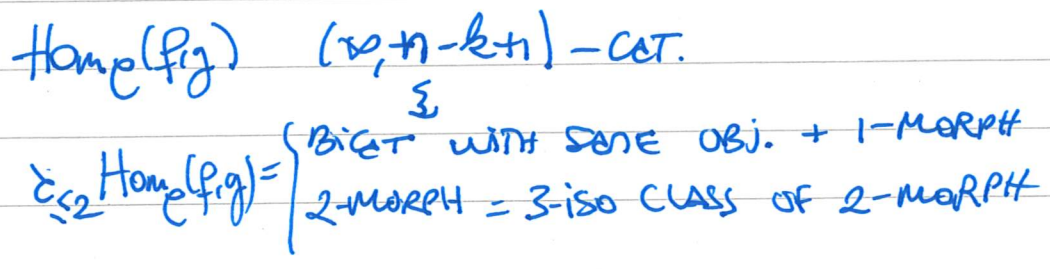 Hom_C(f,g) (∞,n-k+1)-CAT.
⌇
τ_{≤2} Hom_C(f,g) = { BICAT WITH SAME OBJ. + 1-MORPH
2-MORPH = 3-iso CLASS OF 2-MORPH